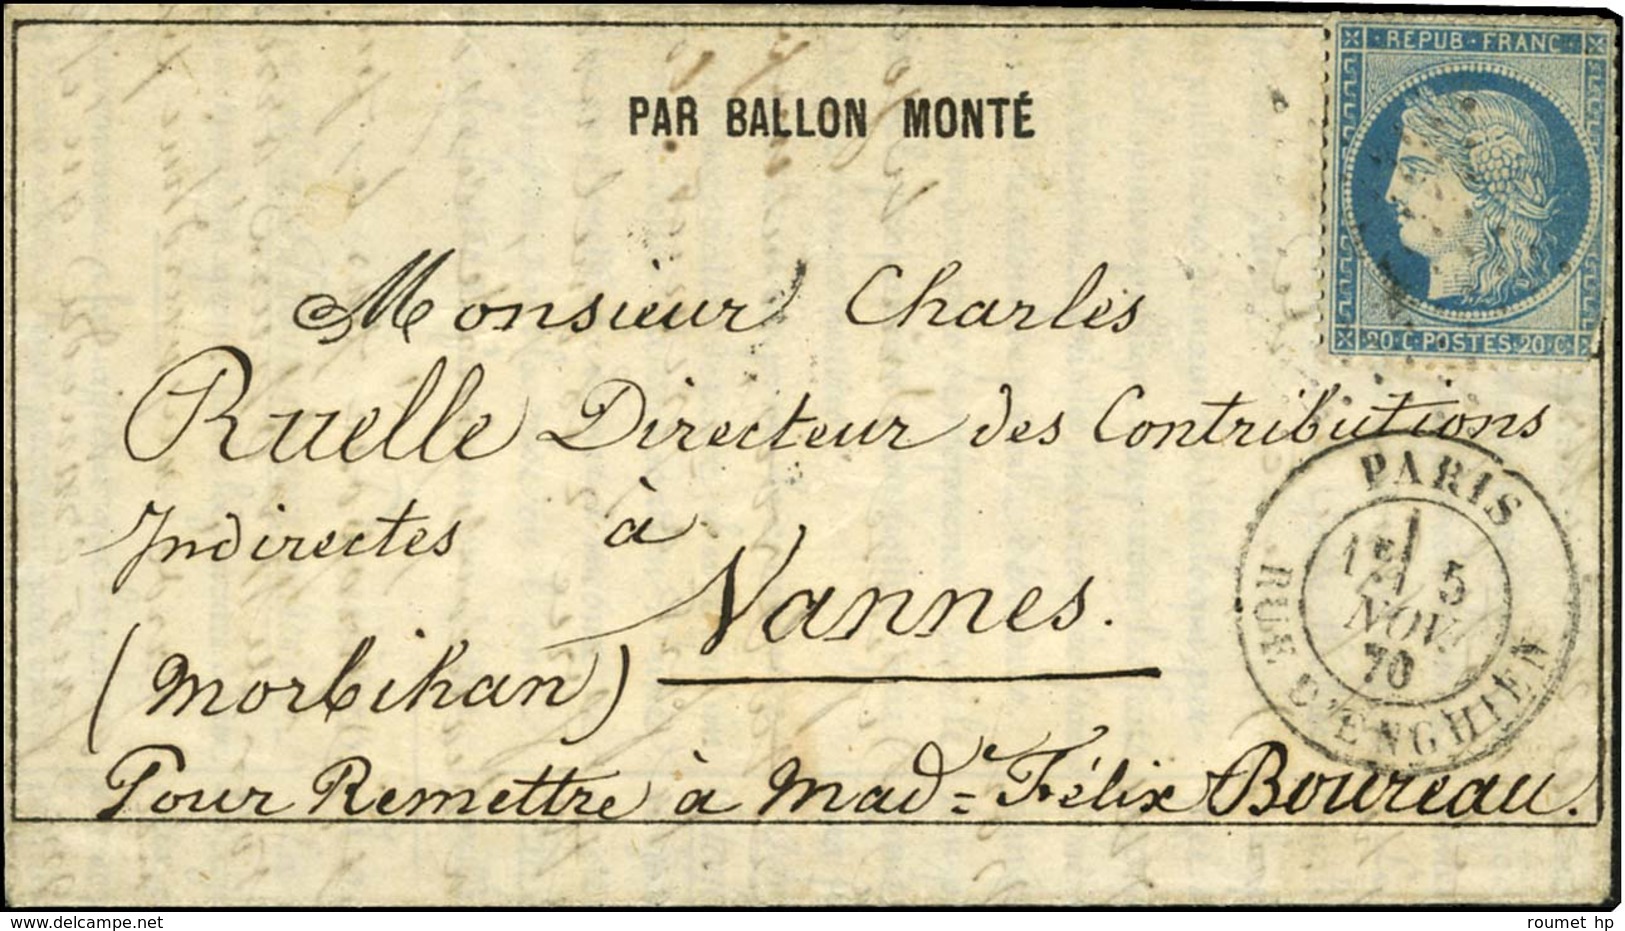 PAR BALLON MONTÉ
· REPUB · FRANC ·
20 · C · POSTES · 20 · C
Monsieur Charles
Ruelle Directeur des Contributions
Indirectes à
Vannes.
(Morbihan)
Pour Remettre à Mad= Félix Boureau.
PARIS
1E 5
NOV.
70
RUE D'ENGHIEN
roumet hp